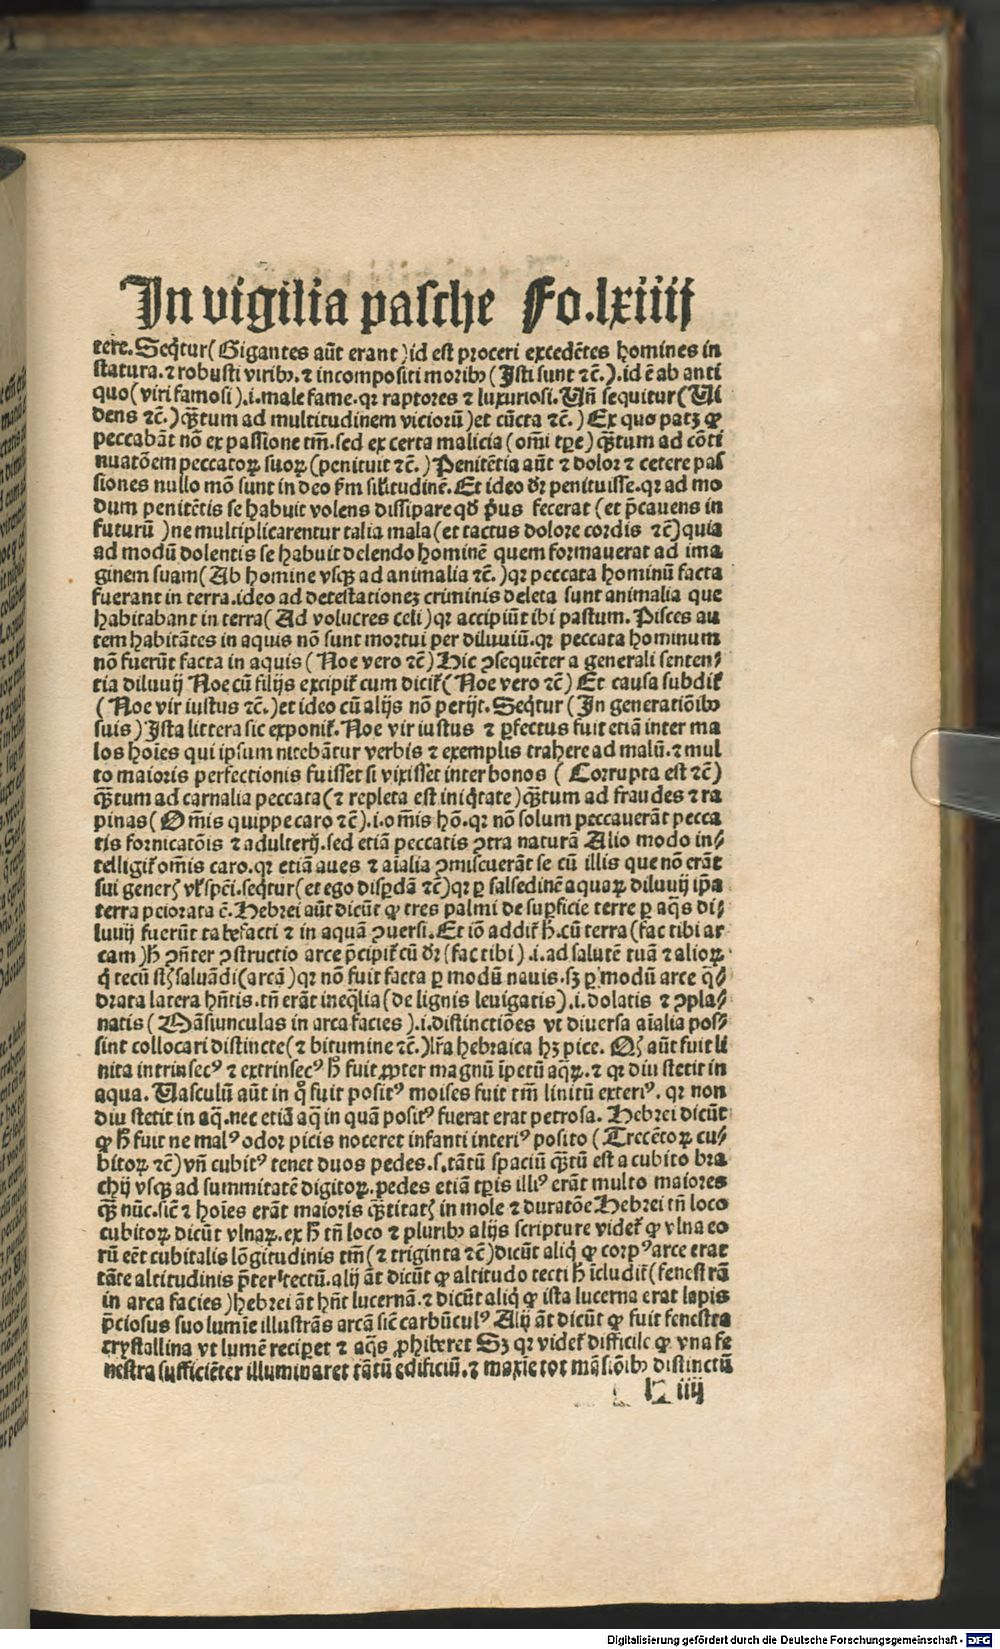 In vigilia pasche Fo.lxiiij
tere. Seq̃tur (Gigantes aūt erant) id est proceri excedẽtes homines in
statura. ⁊ robusti viribꝰ. ⁊ incompositi moribꝰ (Isti sunt ⁊c̃.). id ẽ ab anti
quo (viri famosi). i. male fame. qꝛ raptores ⁊ luxuriosi. Uñ sequitur (Ui
dens ⁊c̃.) q̄ꝫtum ad multitudinem vicioꝛū) et cūcta ⁊c̃.) Ex quo patꝫ ꝙ
peccabāt nō ex passione tm̄. sed ex certa malicia (om̄i tꝑe) q̄ꝫtum ad cōti
nuatōem peccatoꝝ suoꝝ (penituit ⁊c̃.) Penitẽtia aūt ⁊ doloꝛ ⁊ cetere pas
siones nullo mō sunt in deo ẜm sil̓itudinẽ. Et ideo dꝛ̄ penituisse. qꝛ ad mo
dum penitẽtis se habuit volens dissipare qd̄ p̓us fecerat (et p̄cauens in
futurū) ne multiplicarentur talia mala (et tactus dolore cordis ⁊c̃) quia
ad modū dolentis se habuit delendo hominẽ quem formauerat ad ima
ginem suam (Ab homine vsqꝫ ad animalia ⁊c̃.) qꝛ peccata hominū facta
fuerant in terra. ideo ad detestationeꝫ criminis deleta sunt animalia que
habitabant in terra (Ad volucres celi) qꝛ accipiūt ibi pastum. Pisces au
tem habitātes in aquis nō sunt moꝛtui per diluuiū. qꝛ peccata hominum
nō fuerūt facta in aquis (Noe vero ⁊c̃) Hic ꝯsequẽter a generali senten⸗
tia diluuij Noe cū filijs excipit᷑ cum dicit᷑ (Noe vero ⁊c̃) Et causa subdit᷑
(Noe vir iustus ⁊c̃.) et ideo cū alijs nō perijt. Seq̃tur (In generatiōibꝰ
suis) Ista littera sic exponit᷑. Noe vir iustus ⁊ ꝑfectus fuit etiā inter ma
los hoīes qui ipsum nitebātur verbis ⁊ exemplis trahere ad malū. ⁊ mul
to maioris perfectionis fuisset si vixisset inter bonos (Corrupta est ⁊c̃)
q̄ꝫtum ad carnalia peccata (⁊ repleta est iniq̇tate) q̄ꝫtum ad fraudes ⁊ ra
pinas (Om̄is quippe caro ⁊c̃). i. om̄is hō. qꝛ nō solum peccauerāt pecca
tis fornicatōis ⁊ adulterij. sed etiā peccatis ꝯtra naturā Alio modo in⸗
telligit᷑ om̄is caro. qꝛ etiā aues ⁊ aīalia ꝯmiscuerāt se cū illis que nō erāt
sui generꝭ vl̓ spẽi. seq̃tur (et ego disꝑdā ⁊c̃) qꝛ ꝑ salsedinẽ aquaꝝ diluuij ip̄a
terra peioꝛata ẽ. Hebrei aūt dicūt ꝙ tres palmi de suꝑficie terre ꝑ aq̄s di⸗
luuij fuerūt tabefacti ⁊ in aquā ꝯuersi. Et iō addit᷑ h̄. cū terra (fac tibi ar
cam) h̄ ꝯñter ꝯstructio arce p̄cipit᷑ cū dꝛ̄ (fac tibi). i. ad salutẽ tuā ⁊ alioꝝ
q̇ tecū st̄ saluādi (arcā) qꝛ nō fuit facta ꝑ modū nauis. sꝫ ꝑ modū arce q̄⸗
drata latera hñtis. tñ erāt ineq̄lia (de lignis leuigatis). i. dolatis ⁊ ꝯpla⸗
natis (Māsiunculas in arca facies). i. distinctiões vt diuersa aīalia pos⸗
sint collocari distincte (⁊ bitumine ⁊c̃.) lr̄a hebraica hꝫ pice. Qꝭ aūt fuit li
nita intrinsecꝰ ⁊ extrinsecꝰ h̄ fuit ꝓpter magnū īpetū aq̄ꝝ. ⁊ qꝛ diu stetit in
aqua. Uasculū aūt in q̊ fuit positꝰ moises fuit tm̄ linitū exteriꝰ. qꝛ non
diu stetit in aq̄. nec etiā aq̄ in quā positꝰ fuerat erat petrosa. Hebrei dicūt
ꝙ h̄ fuit ne malꝰ odoꝛ picis noceret infanti interiꝰ posito (Trecẽtoꝝ cu⸗
bitoꝝ ⁊c̃) vñ cubitꝰ tenet duos pedes. s. tātū spaciū q̄ꝫtū est a cubito bra
chij vsqꝫ ad summitatẽ digitoꝝ. pedes etiā tꝑis illiꝰ erāt multo maiores
q̄ꝫ nūc. sic̄ ⁊ hoīes erāt maioris q̄ꝫtitatꝭ in mole ⁊ duratōe Hebrei tñ loco
cubitoꝝ dicūt vlnaꝝ. ex h̄ tñ loco ⁊ pluribꝰ alijs scripture videt᷑ ꝙ vlna eo
rū eẽt cubitalis lōgitudinis tm̄ (⁊ triginta ⁊c̃) dicūt aliq̇ ꝙ corpꝰ arce erat
tāte altitudinis p̄ter tectū. alij āt dicūt ꝙ altitudo tecti h̄ īcludit᷑ (fenestrā
in arca facies) hebrei āt hñt lucernā. ⁊ dicūt aliq̇ ꝙ ista lucerna erat lapis
p̄ciosus suo lumīe illustrās arcā sic̄ carbūculꝰ Alij āt dicūt ꝙ fuit fenestra
crystallina vt lumẽ reciꝑet ⁊ aq̄s ꝓhiberet Sꝫ qꝛ videt᷑ difficile ꝙ vna fe
nestra sufficiẽter illuminaret tātū edificiū. ⁊ maxīe tot māsiōibꝰ distinctū
iiij
Digitalisierung gefördert durch die Deutsche Forschungsgemeinschaft - DFG